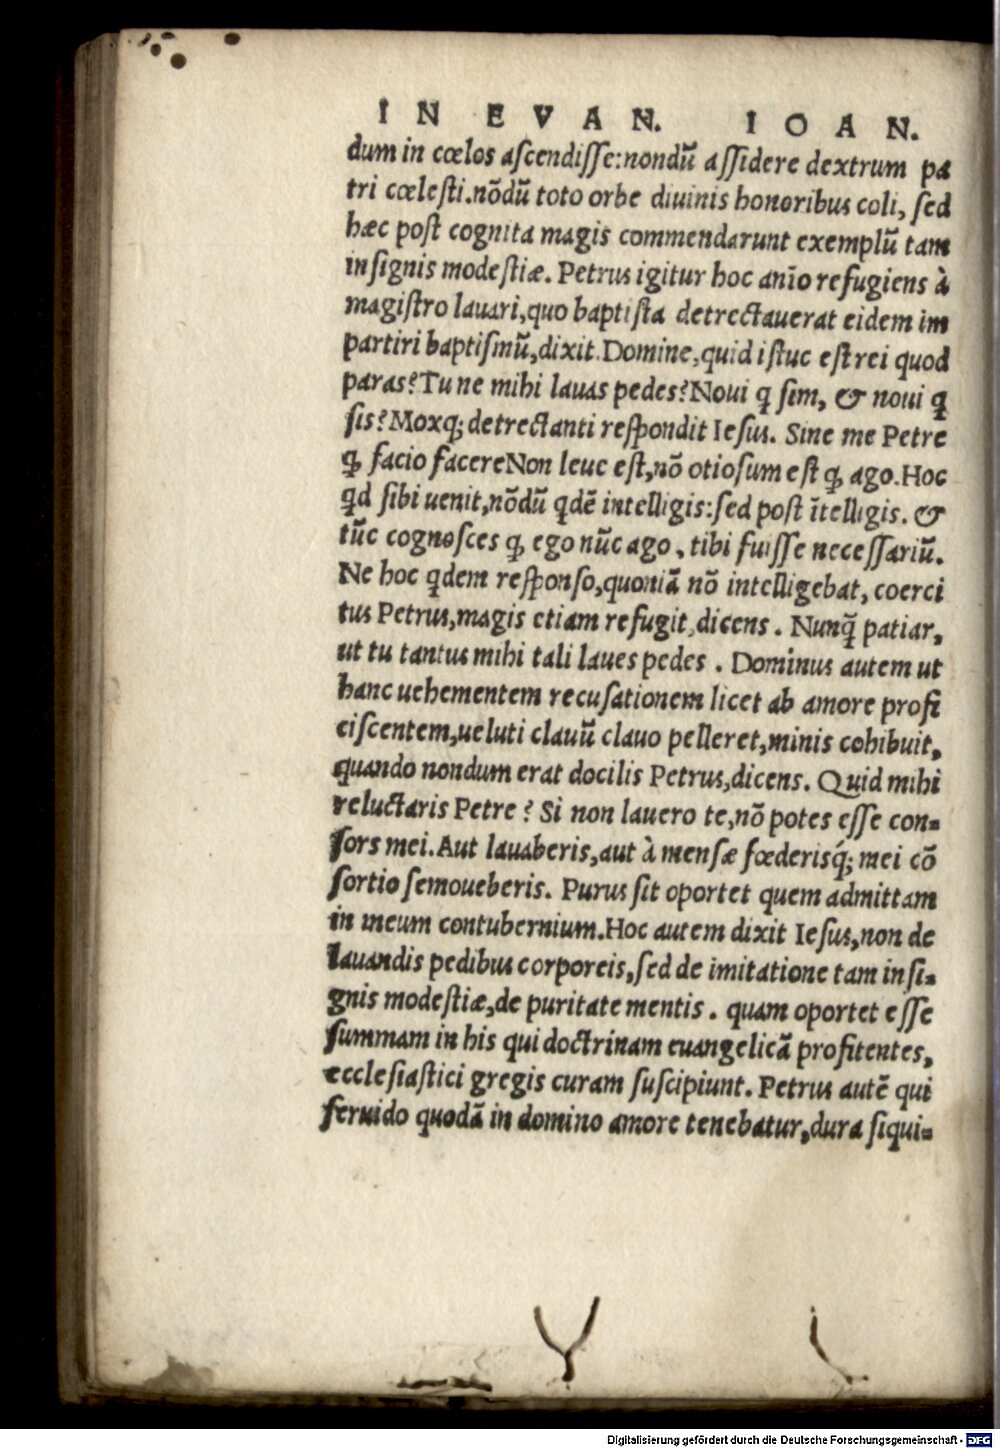 IN EVAN. IOAN.
dum in cœlos ascendisse:nondū assidere dextrum pa
tri cœlesti.nōdū toto orbe diuinis honoribus coli, sed
hæc post cognita magis commendarunt exemplū tam
insignis modestiæ. Petrus igitur hoc anīo refugiens à
magistro lauari,quo baptista detrectauerat eidem im
partiri baptismū,dixit.Domine,quid istuc est rei quod
paras?Tu ne mihi lauas pedes?Noui ꝗ sim, & noui ꝗ
sis?Moxꝗ; detrectanti respondit Iesus. Sine me Petre
ꝙ facio facere Non leue est,nō otiosum est ꝙ ago.Hoc
ꝗd sibi uenit,nōdū ꝗdē intelligis:sed post ītelligis. &
tūc cognosces ꝙ ego nūc ago, tibi fuisse necessariū.
Ne hoc ꝗdem responso,quoniā nō intelligebat, coerci
tus Petrus,magis etiam refugit,dicens. Nunꝗ̄ patiar,
ut tu tantus mihi tali laues pedes. Dominus autem ut
hanc uehementem recusationem licet ab amore profi
ciscentem,ueluti clauū clauo pelleret,minis cohibuit,
quando nondum erat docilis Petrus,dicens. Quid mihi
reluctaris Petre? Si non lauero te,nō potes esse con=
sors mei.Aut lauaberis,aut à mensæ fœderisꝗ́; mei cō
sortio semoueberis. Purus sit oportet quem admittam
in meum contubernium.Hoc autem dixit Iesus,non de
lauandis pedibus corporeis,sed de imitatione tam insi=
gnis modestiæ,de puritate mentis. quam oportet esse
summam in his qui doctrinam euangelicā profitentes,
ecclesiastici gregis curam suscipiunt. Petrus autē qui
feruido quodā in domino amore tenebatur,dura siqui=
Digitalisierung gefördert durch die Deutsche Forschungsgemeinschaft - DFG